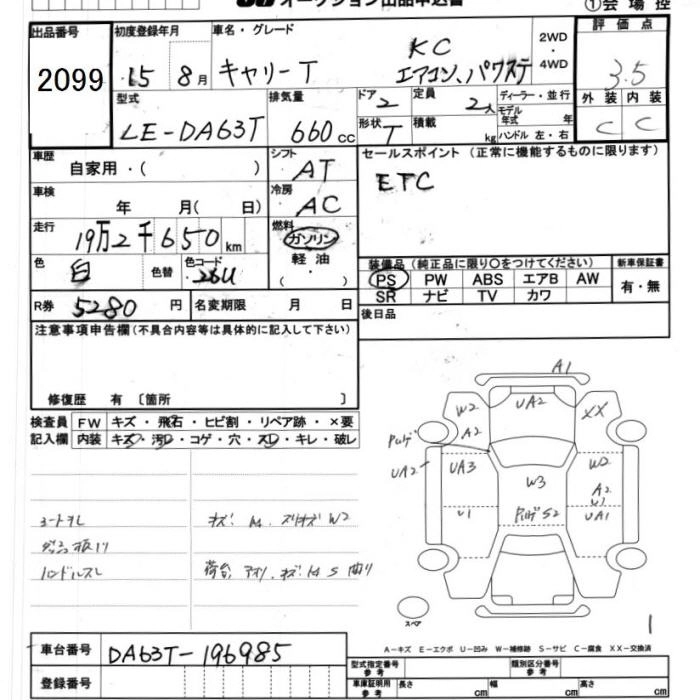 オークション出品申込書 ①会場控
出品番号 初度登録年月 車名・グレード 2WD・4WD 評価点
2099 15 8月 キャリーT KC エアコン、パワステ 3.5
型式 排気量 ドア 2 定員 2人 ディーラー・並行 外装 内装
LE-DA63T 660cc 形状 T 積載 kg モデル年式 年 ハンドル 左・右 C C
車歴 自家用・( ) シフト AT セールスポイント (正常に機能するものに限ります)
車検 年 月( 日) 冷房 AC ETC
走行 19万2千650km 燃料 ガソリン
軽油
・( )
色 白 色替 色コード 26U
装備品 (純正品に限り〇をつけてください) 新車保証書
PS PW ABS エアB AW 有・無
SR ナビ TV カワ
R券 5280円 名変期限 月 日 後日品
注意事項申告欄(不具合内容等は具体的に記入して下さい)
修復歴 有 〔箇所 〕
検査員 FW キズ・飛石・ヒビ割・リペア跡・×要
記入欄 内装 キズ・汚レ・コゲ・穴・スレ・キレ・破レ
A1
W2 UA2 XX
A2
UA2 UA3 W3 W2
A2
W1
U1 S2 UA1
スペア
1
A－キズ E－エクボ U－凹み W－補修跡 S－サビ C－腐食 XX－交換済
車台番号 DA63T-196985
登録番号
型式指定番号 参考 類別区分番号 参考
車庫証明用 参考 長さ cm 幅 cm 高さ cm